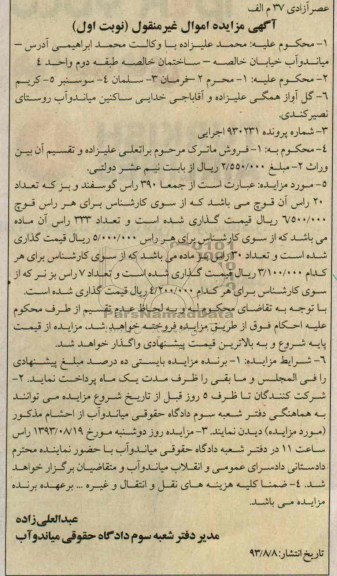 عصر آزادی ۳۷ م الف
آگهی مزایده اموال غیرمنقول (نوبت اول)
۱- محکوم علیه: محمد علیزاده با وکالت محمد ابراهیمی آدرس -
میاندوآب خیابان خالصه - ساختمان خالصه طبقه دوم واحد ۴
۲- محکوم علیه: ۱- محرم ۲- فرمان ۳- سلمان ۴- سوسنبر ۵- کریم
۶- گل آواز همگی علیزاده و آقاباجی خدایی ساکنین میاندوآب روستای
نصیرکندی.
۳- شماره پرونده ۹۳۰۲۳۱ اجرایی
۴- محکوم به: ۱- فروش ماترک مرحوم براتعلی علیزاده و تقسیم آن بین
وراث ۲- مبلغ ۲/۵۵۰/۰۰۰ ریال از بابت نیم عشر دولتی.
۵- مورد مزایده: عبارت است از جمعا ۳۹۰ راس گوسفند و بز که تعداد
۲۰ راس آن قوچ می باشد که از سوی کارشناس برای هر راس قوچ
۶/۵۰۰/۰۰۰ ریال قیمت گذاری شده است و تعداد ۳۳۳ راس آن ماده
می باشد که از سوی کارشناس برای هر راس ۵/۰۰۰/۰۰۰ ریال قیمت گذاری
شده است و تعداد ۳۰ راس بز ماده می باشد که از سوی کارشناس برای هر
کدام ۳/۱۰۰/۰۰۰ ریال قیمت گذاری شده است و تعداد ۷ راس بز نر که از
سوی کارشناس برای هر کدام ۴/۲۰۰/۰۰۰ ریال قیمت گذاری شده است.
با توجه به تقاضای محکوم له و به لحاظ عدم تقسیم از طرف محکوم
علیه احکام فوق از طریق مزایده فروخته خواهد شد. مزایده از قیمت
پایه شروع و به بالاترین قیمت پیشنهادی واگذار خواهد شد.
۶- شرایط مزایده: ۱- برنده مزایده بایستی ده درصد مبلغ پیشنهادی
را فی المجلس و مابقی را ظرف مدت یک ماه پرداخت نماید. ۲-
شرکت کنندگان تا ظرف ۵ روز قبل از تاریخ شروع مزایده می توانند
به هماهنگی دفتر شعبه سوم دادگاه حقوقی میاندوآب از احشام مذکور
(مورد مزایده) دیدن نمایند. ۳- مزایده روز دوشنبه مورخ ۱۳۹۳/۰۸/۱۹ راس
ساعت ۱۱ در دفتر شعبه دادگاه حقوقی میاندوآب با حضور نماینده محترم
دادستانی دادسرای عمومی و انقلاب میاندوآب و متقاضیان برگزار خواهد
شد. ۴- ضمنا کلیه هزینه های نقل و انتقال و غیره ... برعهده برنده
مزایده می باشد.
عبدالعلی زاده
مدیر دفتر شعبه سوم دادگاه حقوقی میاندوآب
تاریخ انتشار: ۹۳/۸/۸